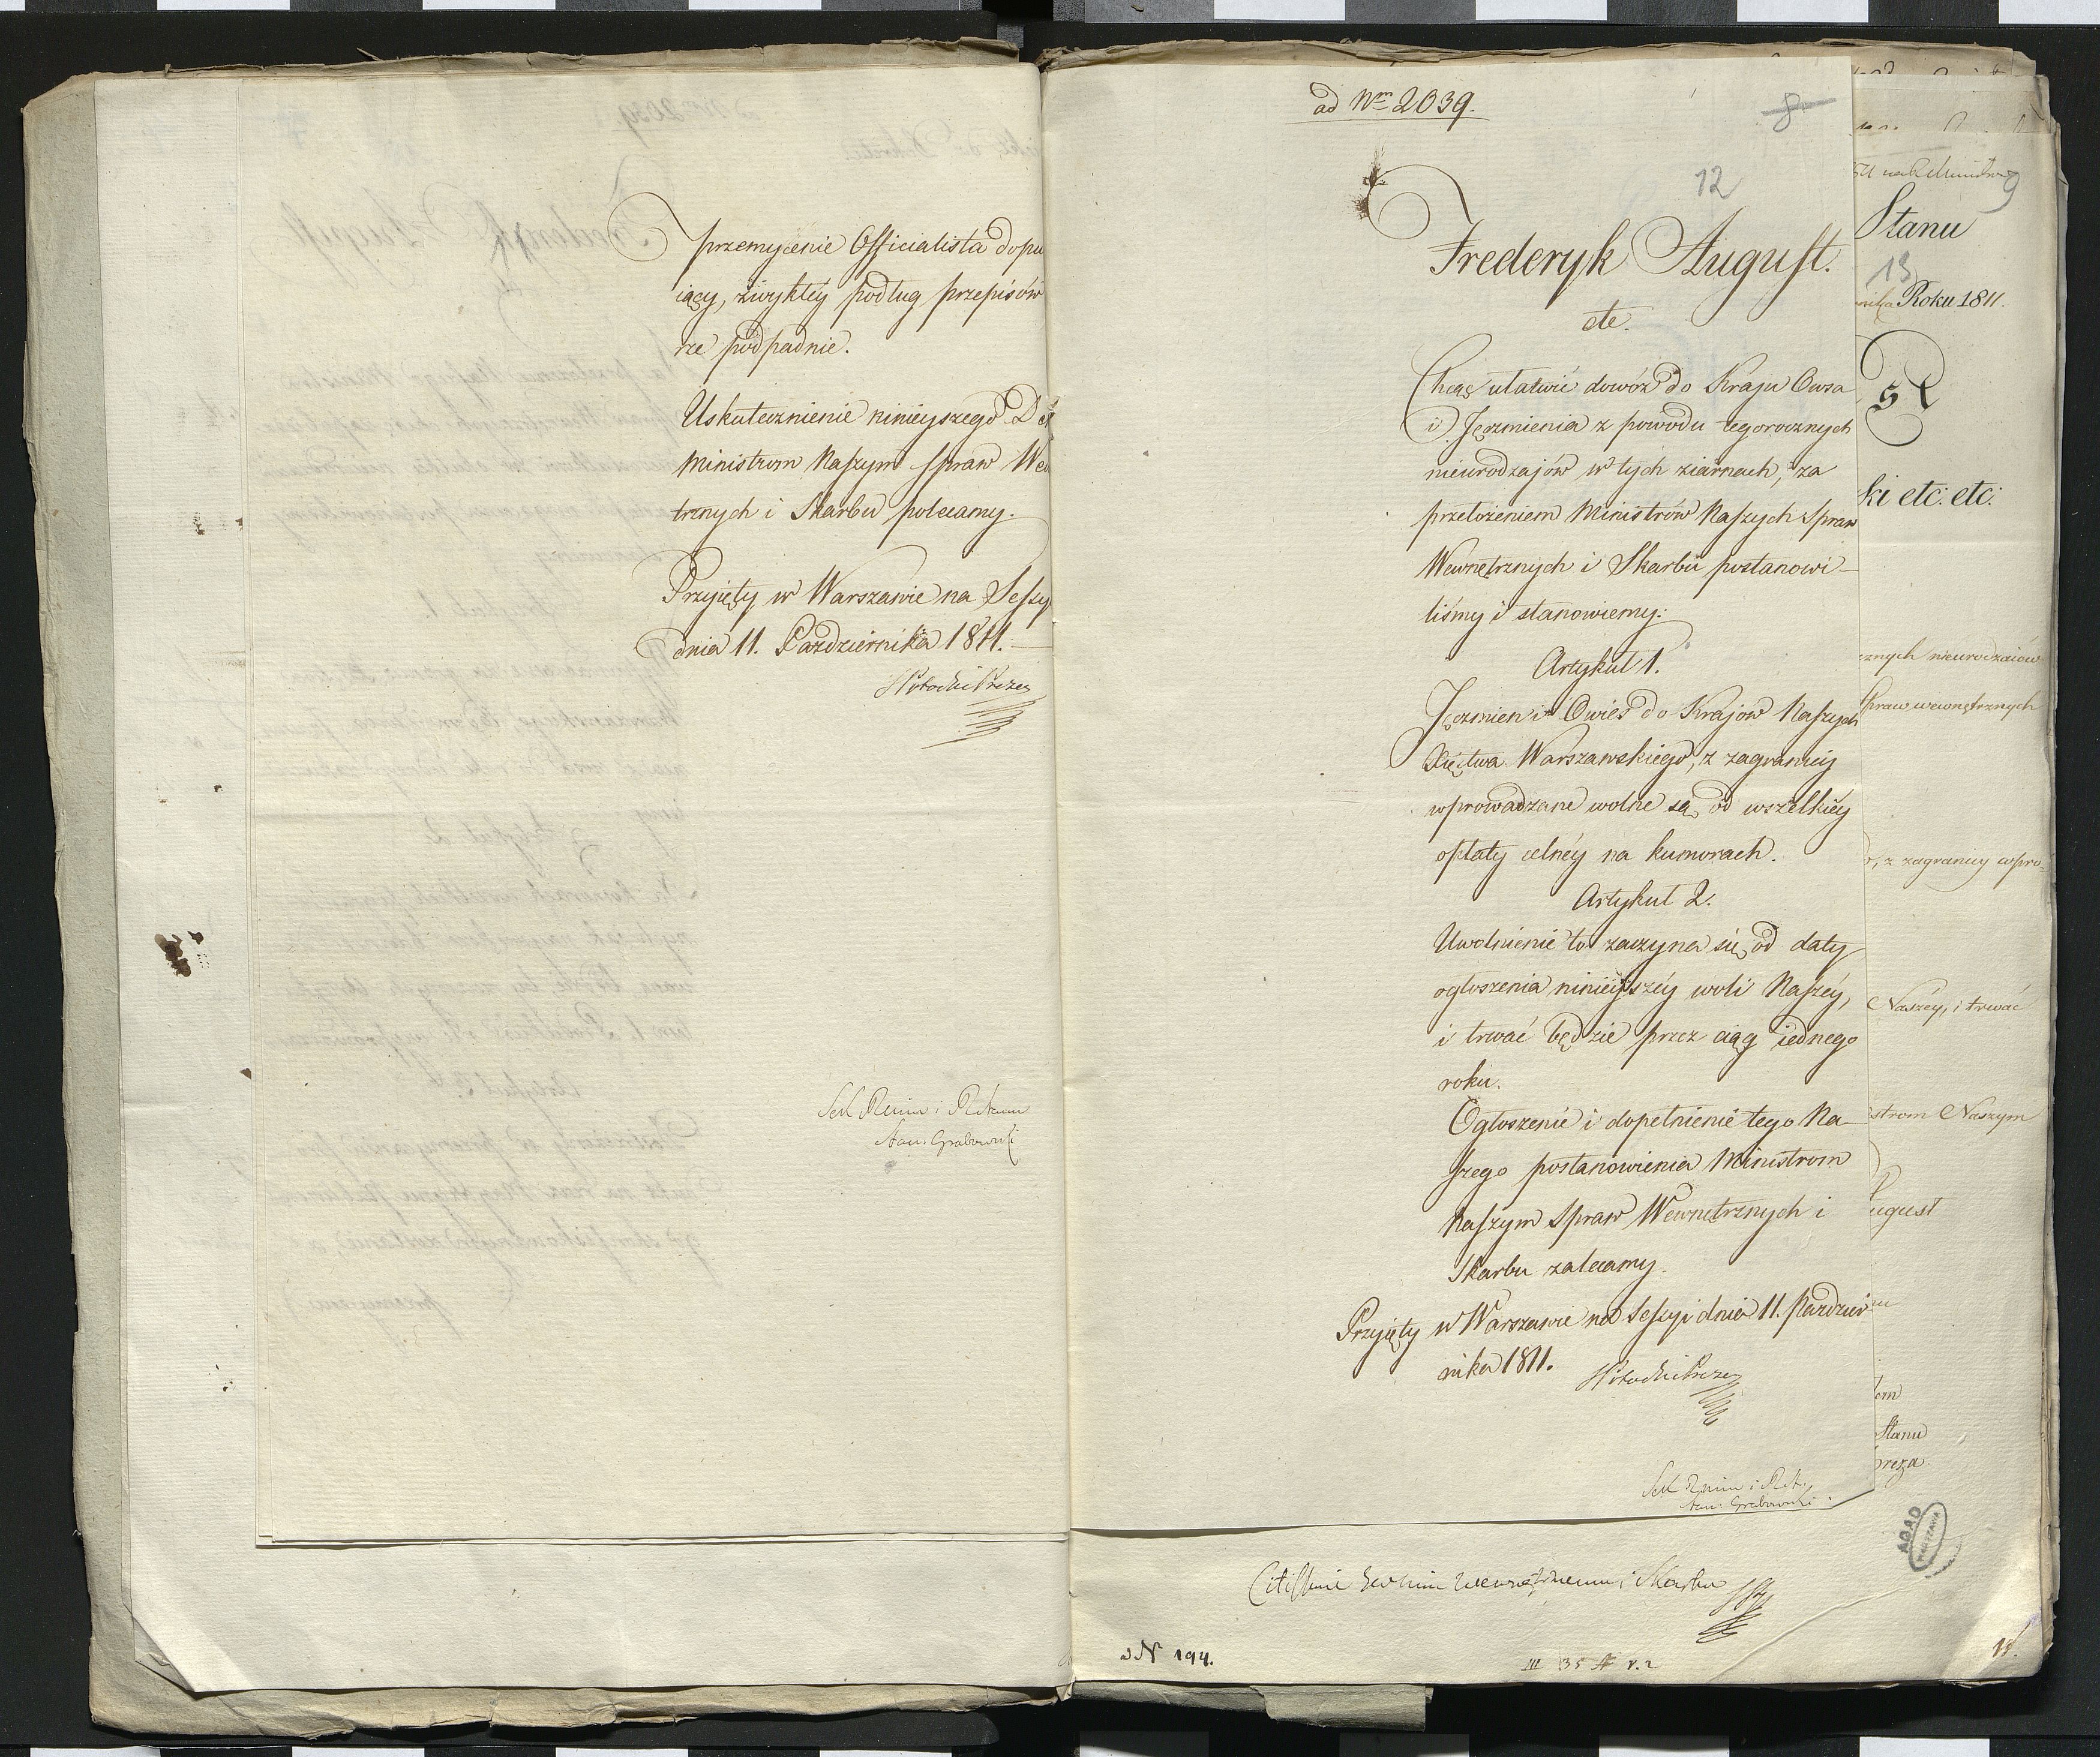 przemycenie Officialista dopu
iący, zwykłéy podług przepisów
rze podpadnie.
Uskutecznienie ninieyszego De
Ministrom Naszym Spraw We
trznych i Skarbu polecamy.
Przyięty w Warszawie na Sessy
dnia 11. Października 1811.
Stan: Grabowski
ad Nrm 2039.
8
12
Frederyk August.
etc.
Chcąc ułatwić dowóz do Kraju Owsa
i Jęczmienia z powodu tegorocznych
nieurodzajów w tych ziarnach, za
przełożeniem Ministrów Naszych Spraw
Wewnętrznych i Skarbu postanowi-
liśmy i stanowiemy:
Artykuł 1.
Jęczmień i Owies do Krajow Naszych
Xięstwa Warszawskiego, z zagranicy
wprowadzane wolne są od wszelkiéy
opłaty celnéy na komorach.
Artykuł 2.
Uwolnienie to zaczyna się od daty
ogłoszenia ninieyszéy woli Naszéy,
i trwać będzie przez ciąg iednego
roku.
Ogłoszenie i dopełnienie tego Na-
szego postanowienia Ministrom
Naszym Spraw Wewnętrznych i
Skarbu zalecamy.
Przyięty w Warszawie na Sessyi dnia 11. Paździer
nika 1811.
Stan: Grabowski
Stanu
9
13
Roku 1811.
ki etc: etc:
cznych nieurodzaiów
Spraw wewnętrznych
z zagranicy wpro-
Naszéy, i trwać
strom Naszym
ugust
Stanu
preza
ADAD
WARSZAWA
i Skarbu
N 194.
III 35 r. 2